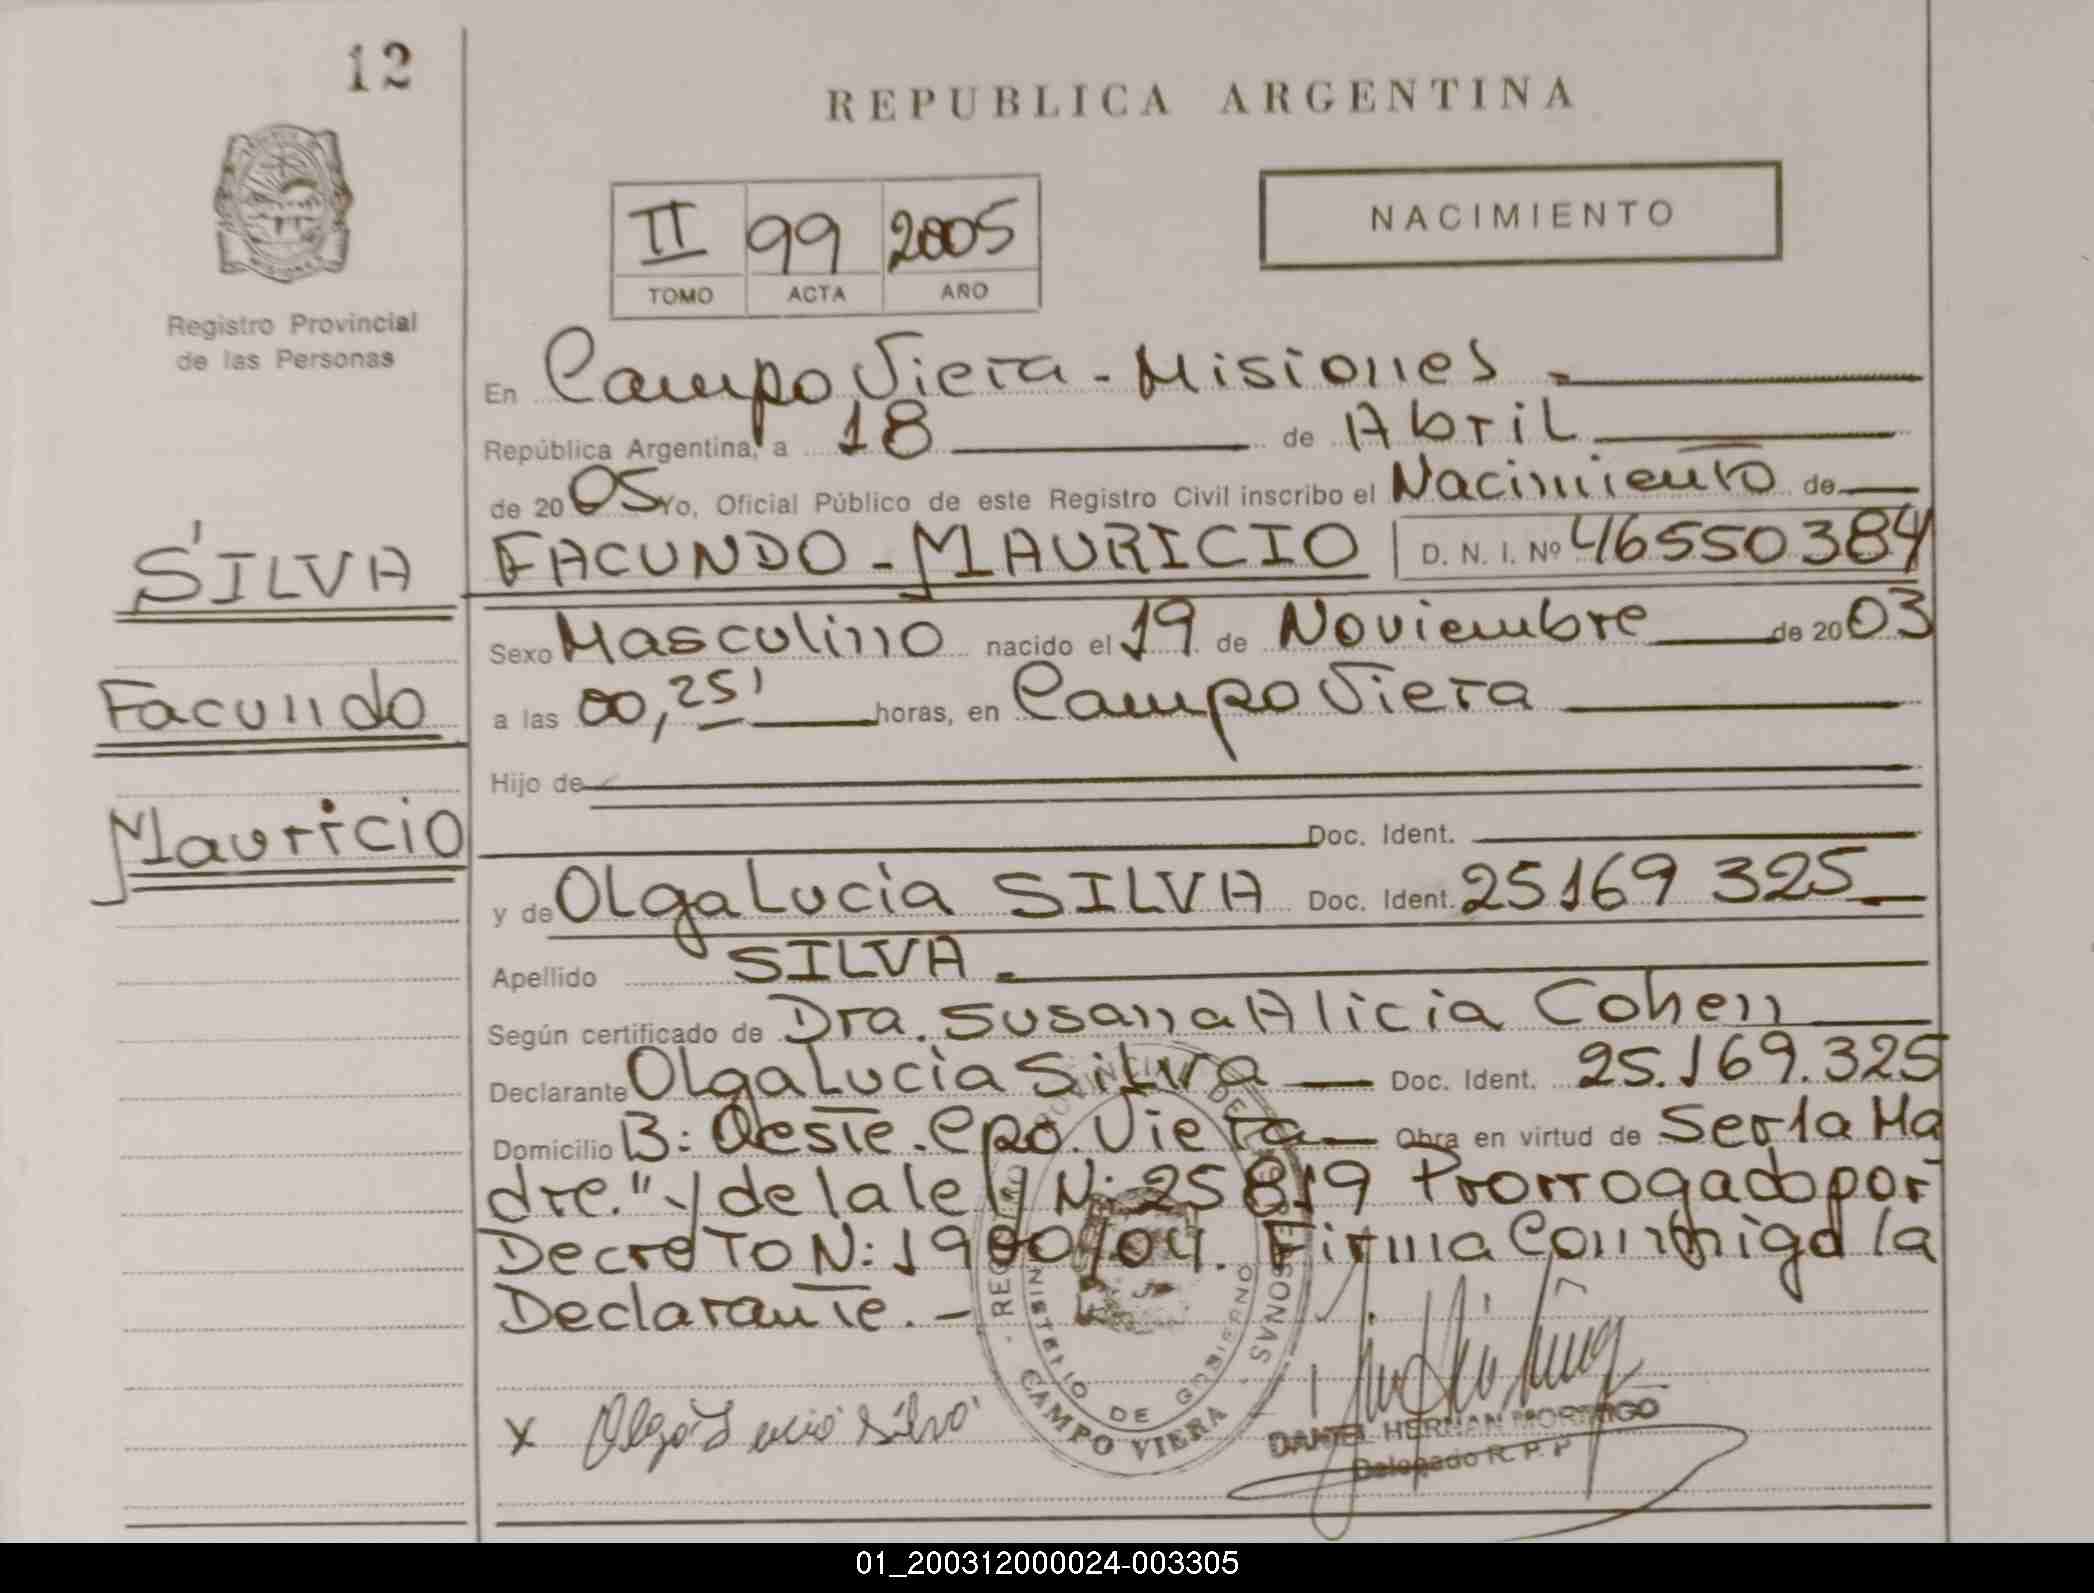 12
REPUBLICA ARGENTINA
II 99 2005
TOMO ACTA AÑO
NACIMIENTO
Registro Provincial
de las Personas
En Campo Viera - Misiones
República Argentina, a 18 de Abril
de 2005 Yo, Oficial Público de este Registro Civil inscribo el Nacimiento de
SILVA
FACUNDO - MAURICIO D. N. I. Nº 46550384
Sexo Masculino nacido el 19 de Noviembre de 2003
Facundo
a las 00,25' horas, en Campo Viera
Hijo de
Mauricio
Doc. Ident.
y de Olga Lucia SILVA Doc. Ident. 25169 325
Apellido SILVA.
Según certificado de Dra. Susana Alicia Cohen
Declarante Olga Lucia Silva Doc. Ident. 25.169.325
Domicilio B: Oeste. Cpo. Viera Obra en virtud de Ser la Ma
dre." y de la ley N: 25819 Prorrogado por
Decreto N: 1900/04. Firma Conmigo la
Declarante. -
REGISTRO PROVINCIAL DE LAS PERSONAS
MINISTERIO DE GOBIERNO
CAMPO VIERA
x Olga Lucia Silva
DANIEL HERNAN MORINIGO
Delegado R. P. P
01_200312000024-003305